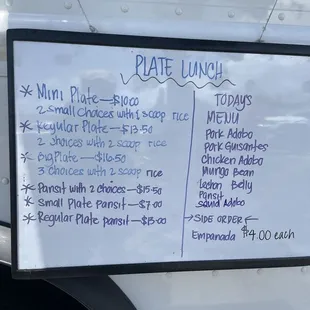 PLATE LUNCH
* Mini Plate—$10.00
2 small choices with 1 scoop rice
* Regular Plate—$13.50
2 choices with 2 scoop rice
* Big Plate—$16.50
3 choices with 2 scoop rice
* Pansit with 2 choices—$15.50
* Small Plate pansit—$7.00
* Regular Plate pansit—$13.00
TODAYS
MENU
Pork Adobo
Pork Guisantes
Chicken Adobo
Mungo Bean
Lechon Belly
Pansit
Squid Adobo
→SIDE ORDER←
Empanada $4.00 each